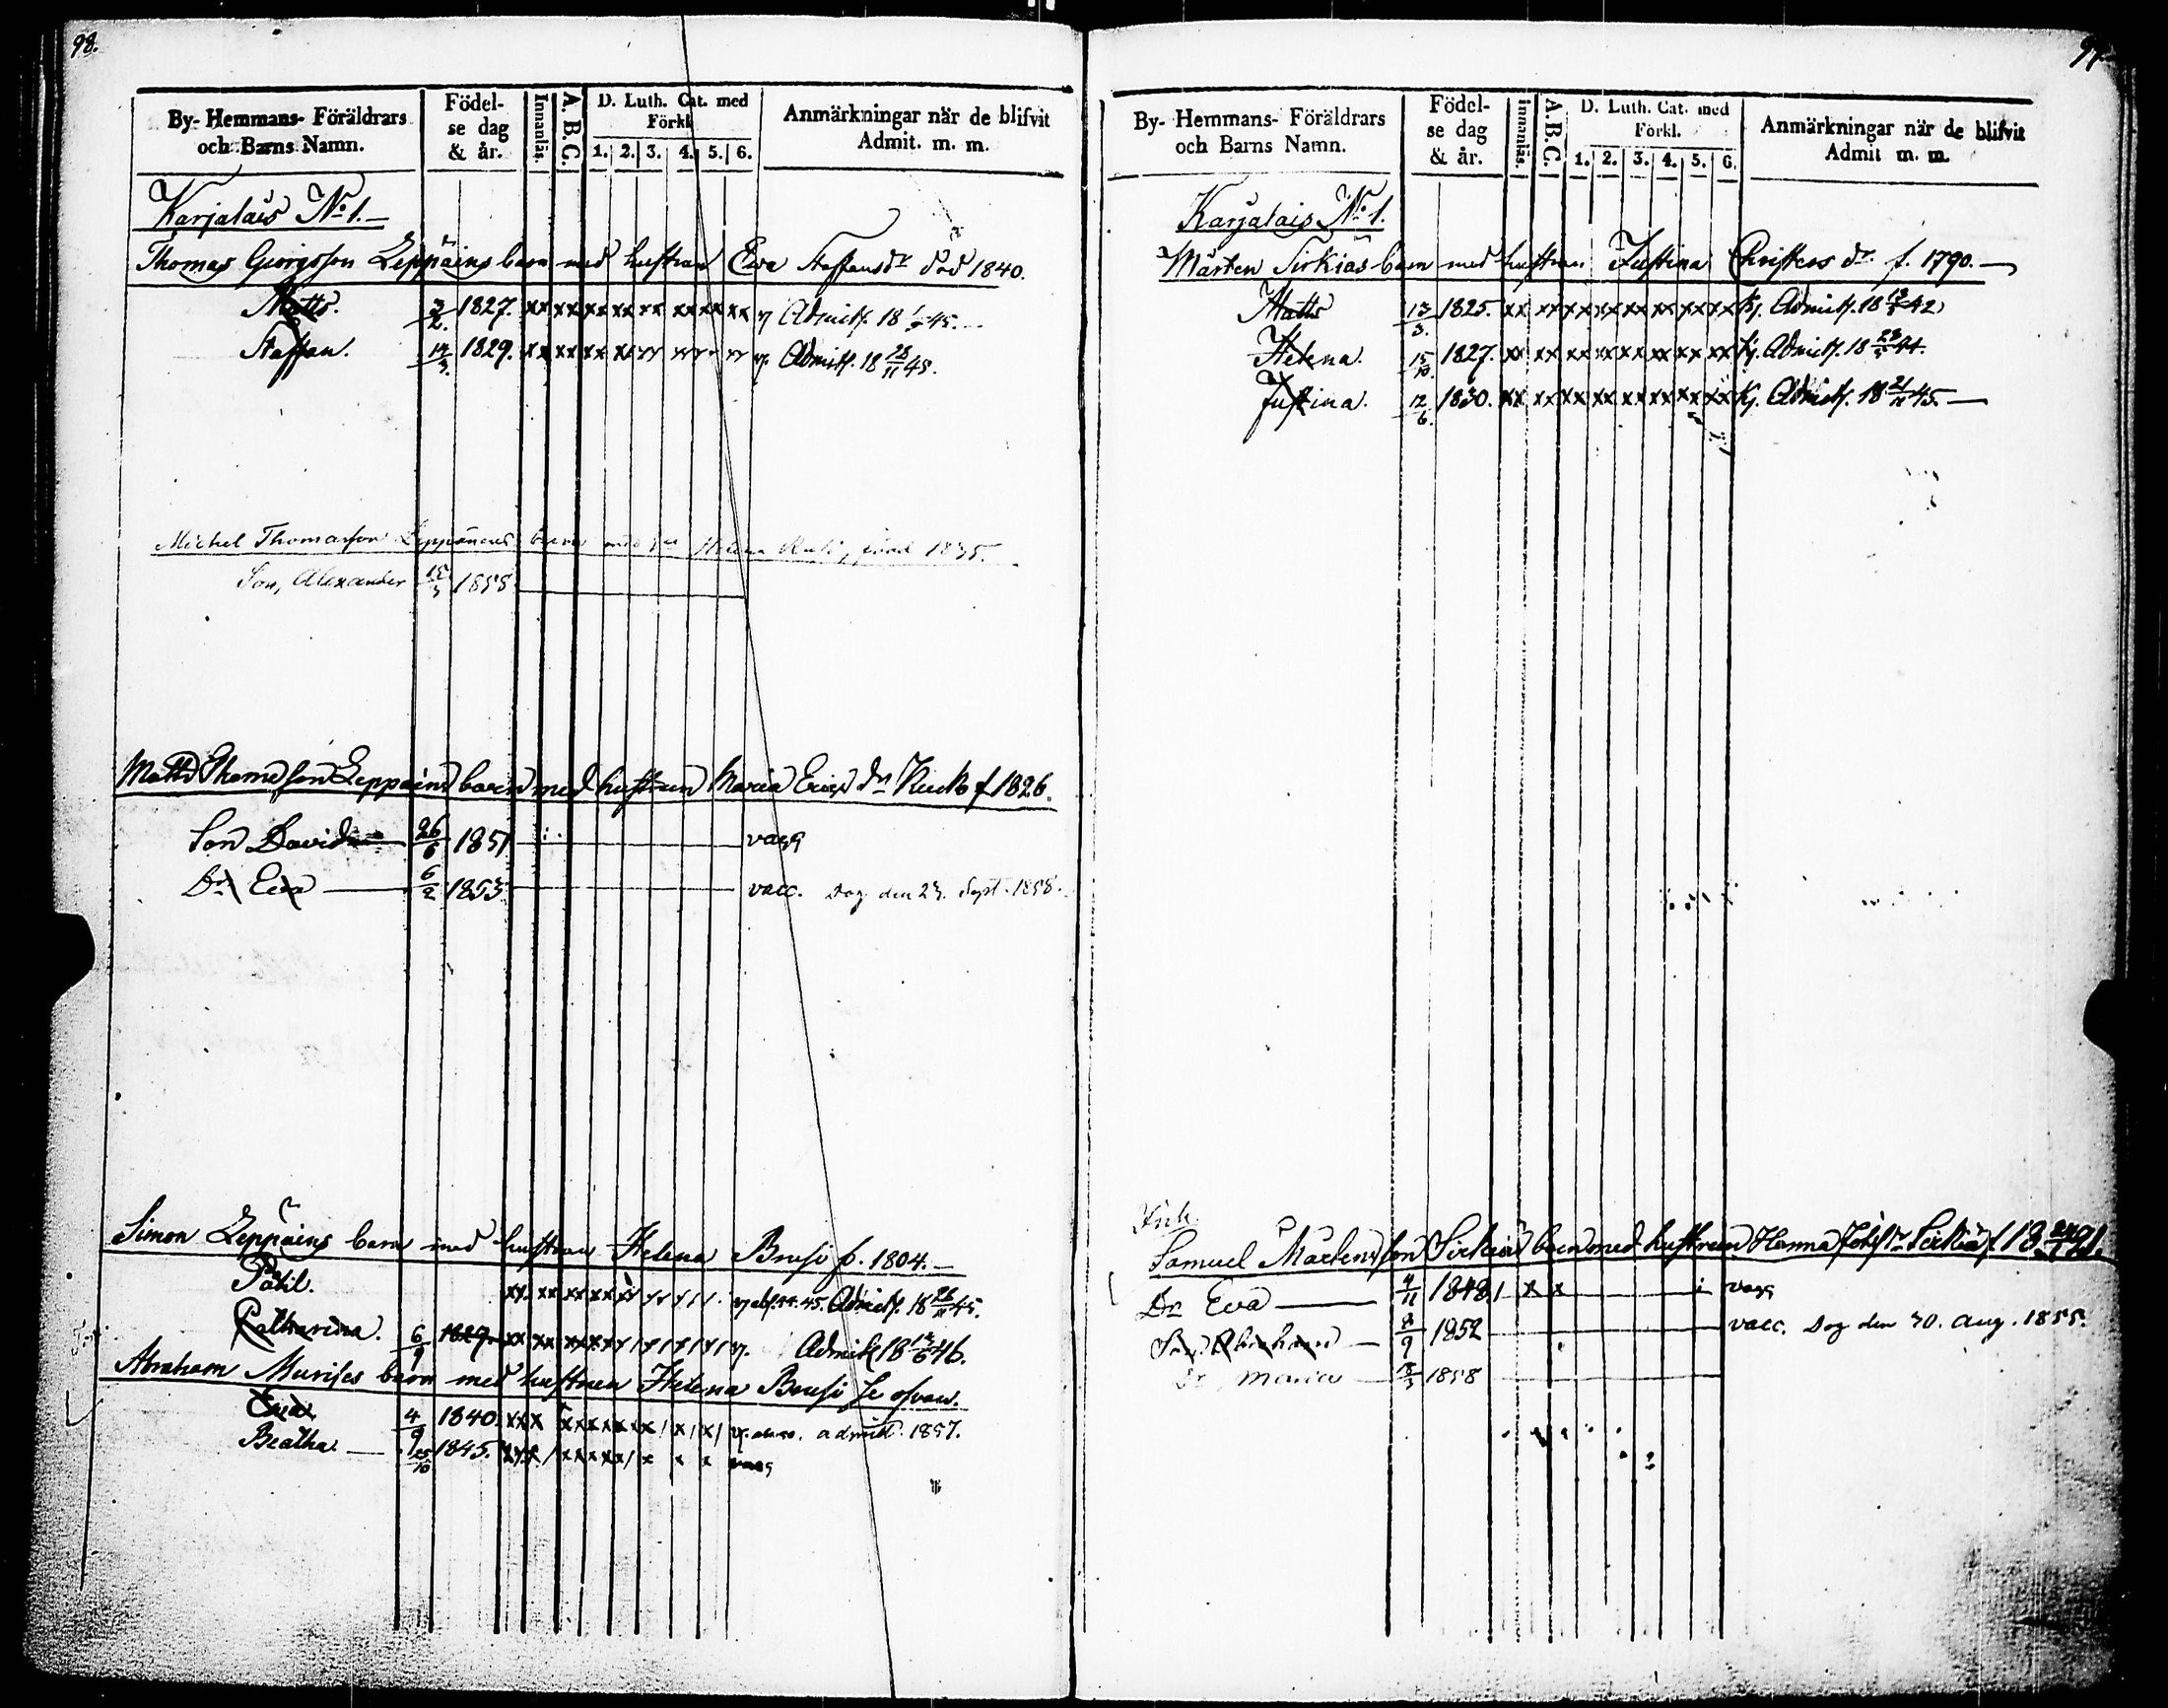 98.
By- Hemmans- Föräldrars och Barns Namn.
Födelse dag & år.
Innanläs.
A.B.C.
D. Luth. Cat. med Förkl.
1. 2. 3. 4. 5. 6.
Anmärkningar när de blifvit Admit. m. m.
Karjalais No 1.
Thomas Georgsson Leppäins barn med hustrun Ewa Staffansdr död 1840.
Matts. 3/2. 1827. xx xx xx xx xx xx xx xx Admitt. 18 45.
Staffan. 14/3. 1829. Admitt. 18 28/11 45.
Michel Thomasson Leppänens barn med Helena 1835.
Son, Alexander 1855
Matts Thomasson Leppäins barn med hustrun Maria Ericsdr Kuck f 1826.
Son David 26/6 1851 vacc
Dr Eva 6/2 1853 vacc. Dog den 23. Sept. 1858.
Simon Leppäins barn med hustrun Helena Brusi f. 1804.
Påhl. Admitt. 18 45.
Catharina. 6/9 1829. Admitt 18 46.
Abraham Murises barn med hustrun Helena Brusi Se ofvan.
4/9 1840. admitt. 1857.
Beatha 1845. vacc
By- Hemmans- Föräldrars och Barns Namn.
Födelse dag & år.
Innanläs.
A.B.C.
D. Luth. Cat. med Förkl.
1. 2. 3. 4. 5. 6.
Anmärkningar när de blifvit Admit m. m.
Karjalais No 1.
Mårten Sirkiäs barn med hustrun Justina Christers dr f. 1790.
Matts 13/3. 1825. xx xx xx xx xx xx xx xx Kj. Admitt. 18 42
Helena. 15/10. 1827. xx xx xx xx xx xx xx xx Kj. Admitt. 18 44.
Justina. 12/6. 1830. xx xx xx xx xx xx xx xx Kj. Admitt. 18 45.
Inh.
Samuel Mårtensson Sirkiäs barn med hustrun Hanna Sirkiä f 18 21.
Dr Eva 4/11 1848 x x vacc
Son Abraham 8/9 1852 vacc. Dog den 30. Aug. 1855.
Dr Maria 1858